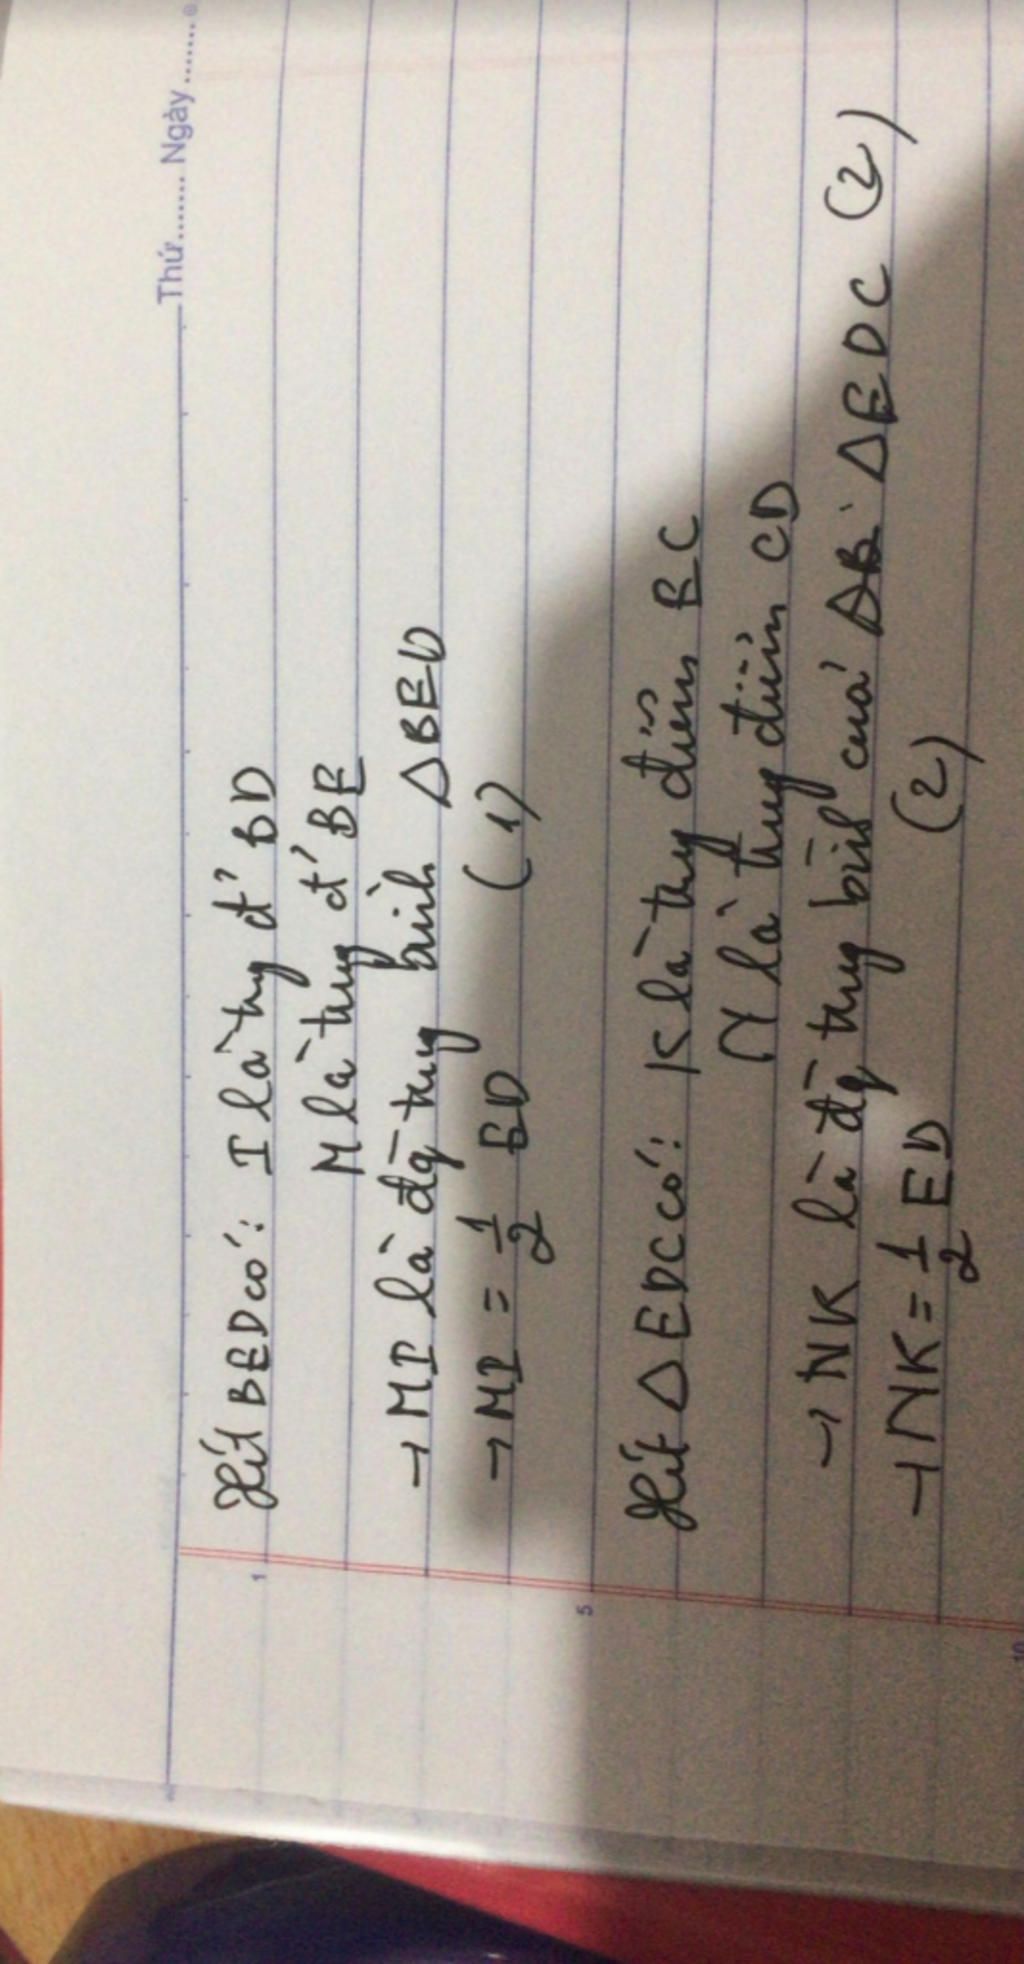 Thứ........ Ngày ........
Xét BED có: I là trug đ' BD
M là trug đ' BE
→ MI là đg trug bình ΔBED
→ MI = 1/2 ED (1)
Xét ΔEDC có: K là trug điểm EC
N là trug điểm CD
→ NK là đg trug bình của ΔEDC (2)
→ NK = 1/2 ED (2)
1
5
10